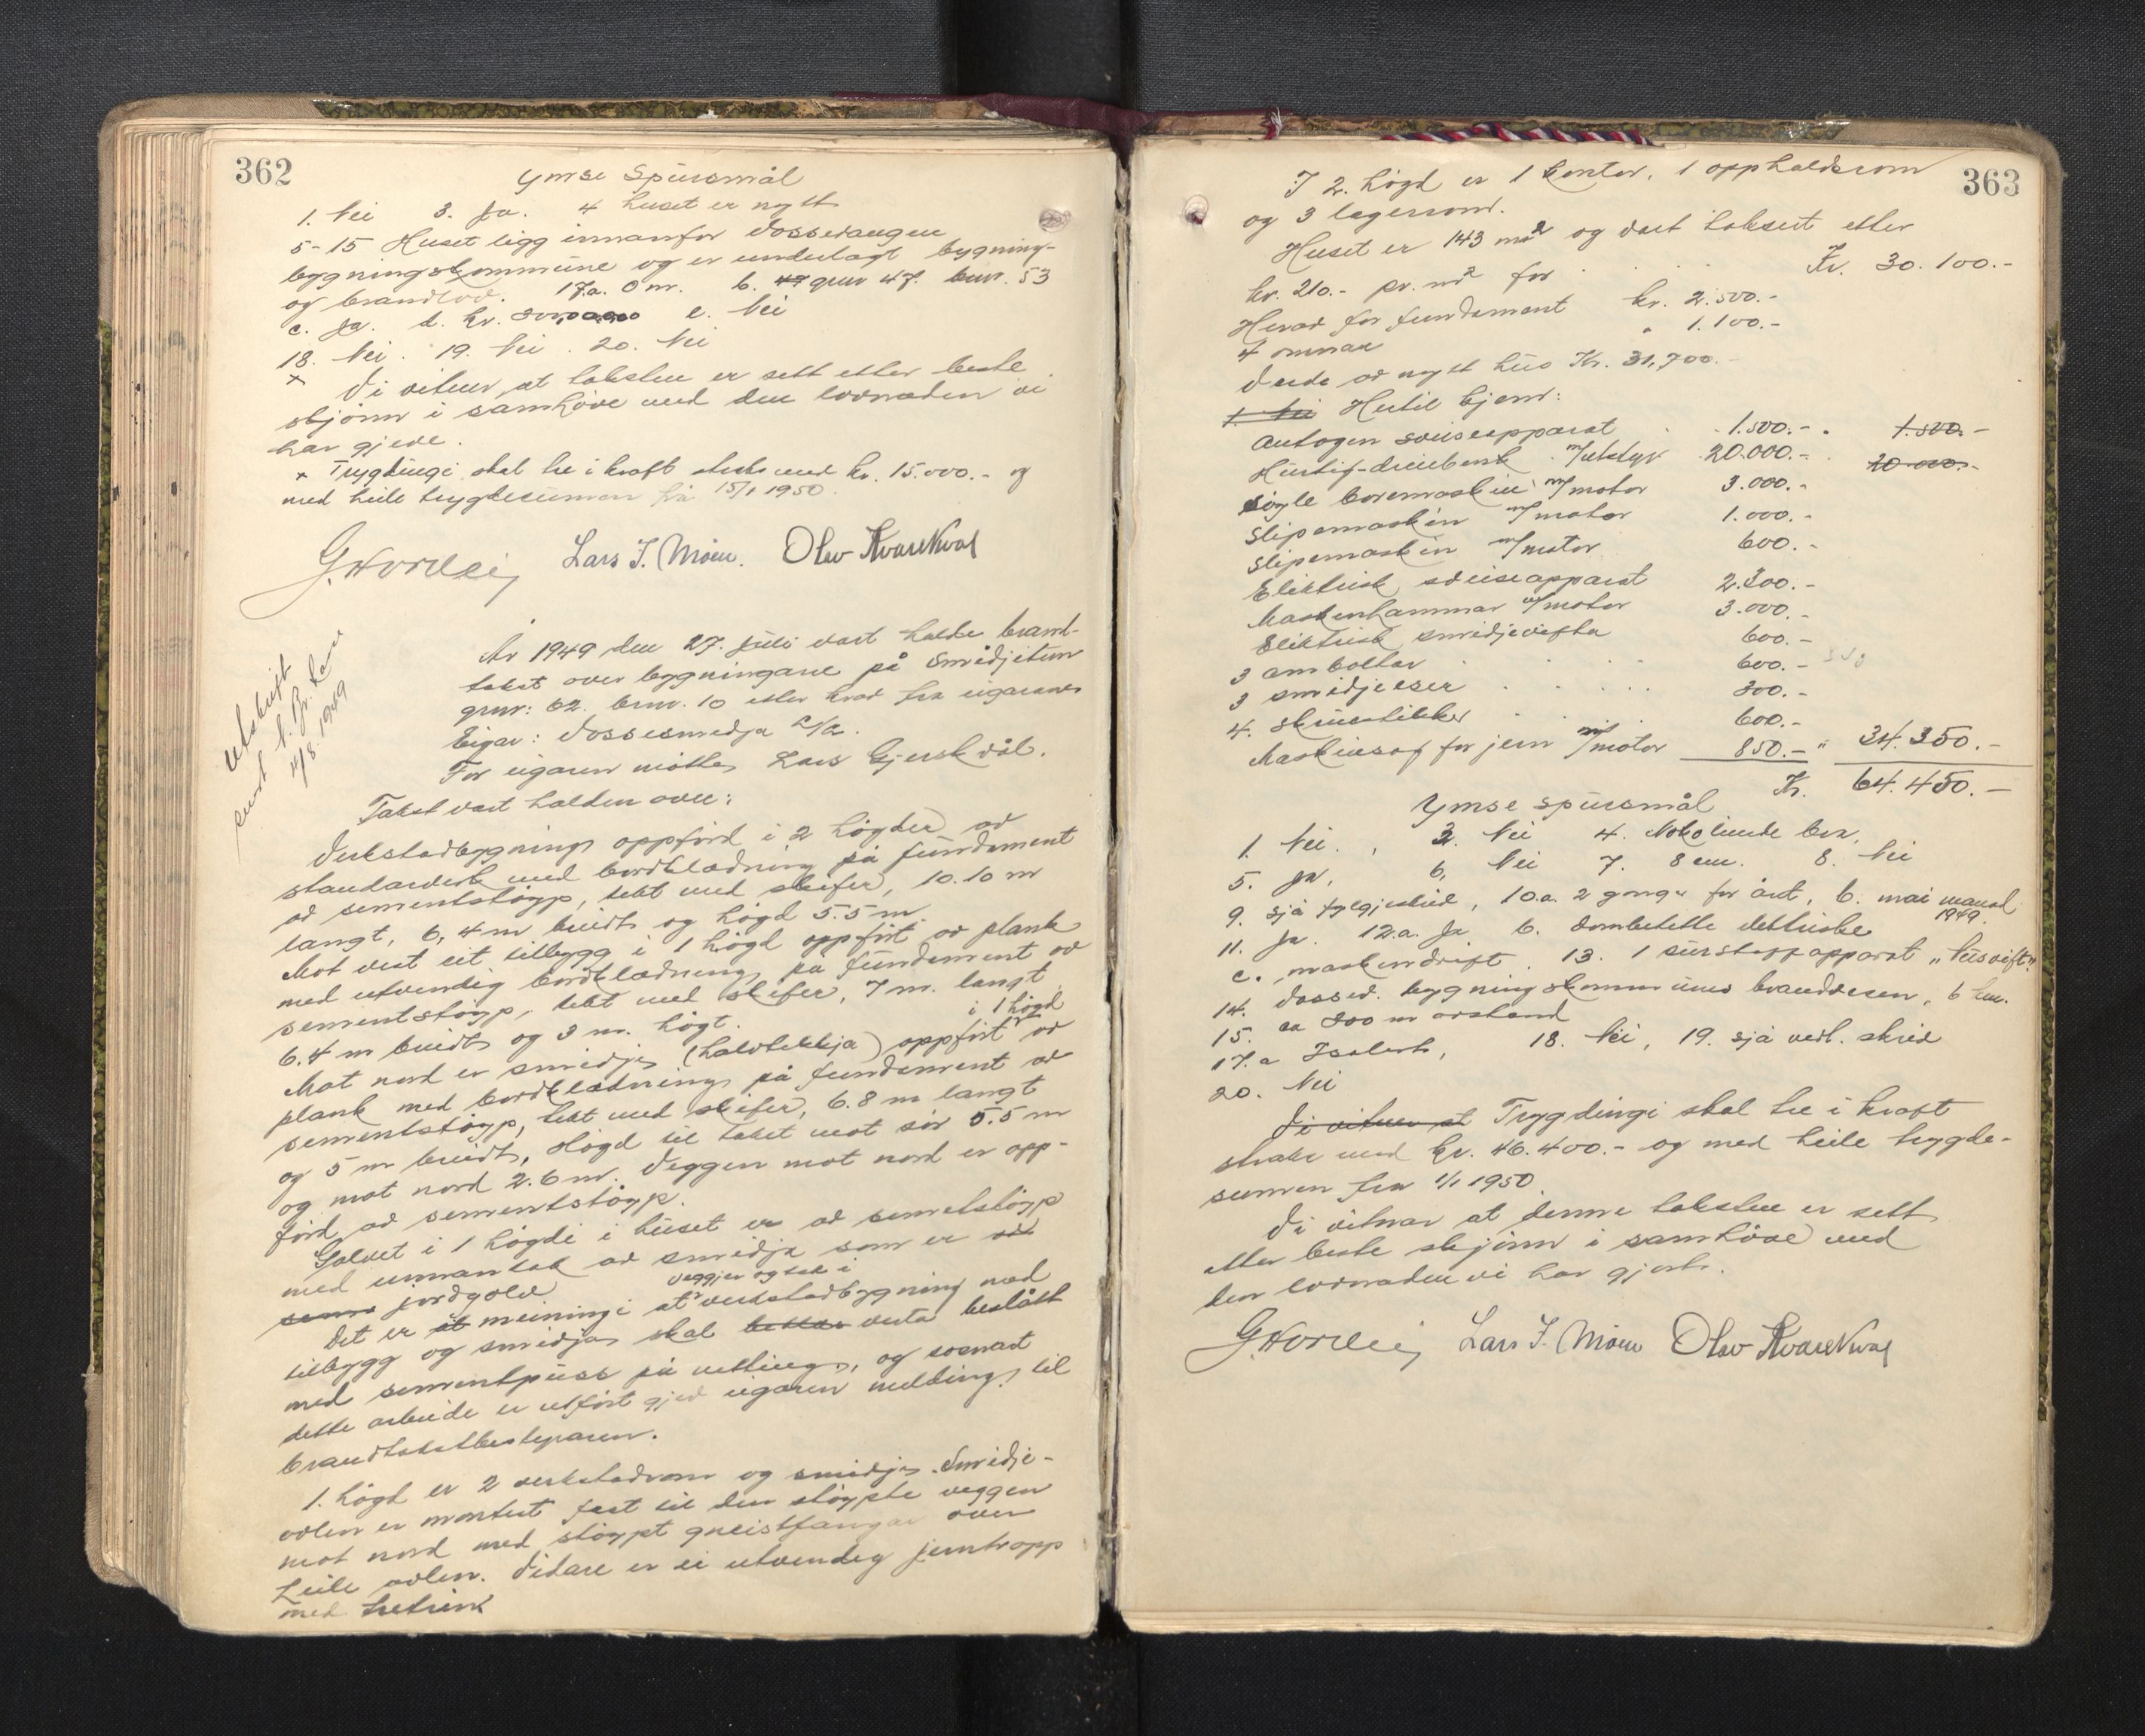 362
Ymse Spursmål
1. Nei 3. Ja. 4 huset er nytt
5-15 Huset ligg innanfor Vossevangen
bygningskommune og er underlagt bygning-
og brandlov. 17.a. 0 m. b. gnr 47. bnr. 53
c. Ja. d. kr. e. Nei
18. Nei. 19. Nei. 20. Nei
x Vi vitnar at taksten er sett etter beste
skjønn i samhøve med den lovnaden vi
har gjeve.
x Trygdingi skal tre i kraft straks med kr. 15.000.- og
med heile trygdesumen frå 15/1 1950.
Lars J. Møen. Olav Kvarekval
Utskrift
sendt
11/8. 1949
År 1949 den 27. juli vart halde brand-
takst over bygningane på Smidjetun
gnr: 62. bnr. 10 etter krav fra eigaren
Eigar: Vossesmedja A/L.
For eigaren møtte Lars Gjerskdål.
Takst vart halden over:
Verkstadbygning oppførd i 2 høgder av
standarverk med bordklædning på fundament
av sementstøyp, tekt med skifer, 10.10 m
langt, 6,4 m breidt og høgd 5.5 m.
Mot vest eit tilbygg i 1 høgd oppført av plank
med utvendig bordklædning på fundament av
sementstøyp, tekt med skifer, 7 m. langt
6.4 m breidt og 3 m. høgt.
i 1 høgd
Mot nord er smidje (halvtekkja) oppført av
plank med bordklædning på fundament av
sementstøyp, tekt med skifer, 6.8 m langt
og 5 m breidt, Høgd til taket mot sør 5.5 m
og mot nord 2.6 m. Veggen mot nord er opp-
førd av sementstøyp.
Golvet i 1 høgdi i huset er av sementstøyp
med unnantak av smidja som er
jordgolv
veggjer og tak i
Det er meiningi at verkstadbygning med
tilbygg og smidja skal verta beslått
med sementpuss på netting, og sosnart
dette arbeide er utført gjev eigaren melding til
brandtakstbestyraren.
1. høgd er 2 verkstadrom og smidje. Smidje-
avlen er montert fast til den støypte veggen
mot nord med støypt gneistfangar over
heile avlen. Vidare er ei utvendig jerntropp
med
363
I 2. høgd er 1 kontor, 1 oppholdsrom
og 3 lagerrom.
Huset er 143 m2 og vart taksert etter
kr. 210.- pr. m2 for Kr. 30.100.-
Herav for fundament kr. 2.500.-
4 omnar " 1.100.-
Verde av nytt hus Kr. 31,700.-
1. Nei Hertil kjem:
Autogen sveiseapparat 1.500.- 1.500.-
Hurtig-dreiebenk m/utstyr 20.000.- 20.000.-
Søyle boremaskin m/motor 3.000.-
Slipemaskin m/motor 1.000.-
Slipemaskin m/motor 600.-
Elektrisk sveiseapparat 2.300.-
Maskinhammar m/motor 3.000.-
Elektrisk smidjevifta 600.-
3 amboltar 600.-
3 smidjeesser 300.-
4. skruestikker 600.-
Maskinsag for jern m/motor 850.- " 34.350.-
Kr. 64.450.-
Ymse spursmål
1. Nei. 3. Nei 4. Noko linde bra.
5. Ja. 6. Nei 7. 8 cm. 8. Nei
9. sjå fylgjeskriv, 10.a. 2 gonger for året, b. mai månad
1949.
11. Ja. 12.a. Ja b. elektriske
c. maskindrift. 13. 1 surstoffapparat
14. Vossev. bygningskommunes brandvesen, 6 km.
15. ca 300 m avstand
17.a Isolert, 18. Nei, 19. sjå vedl. skriv
20. Nei
Vi vitnar at Trygdingi skal tre i kraft
straks med kr. 46.400.- og med heile trygde-
sumen fra 1/1 1950.
Vi vitnar at denne taksten er sett
etter beste skjønn i samhøve med
den lovnaden vi har gjort.
Lars J. Møen Olav Kvarekval